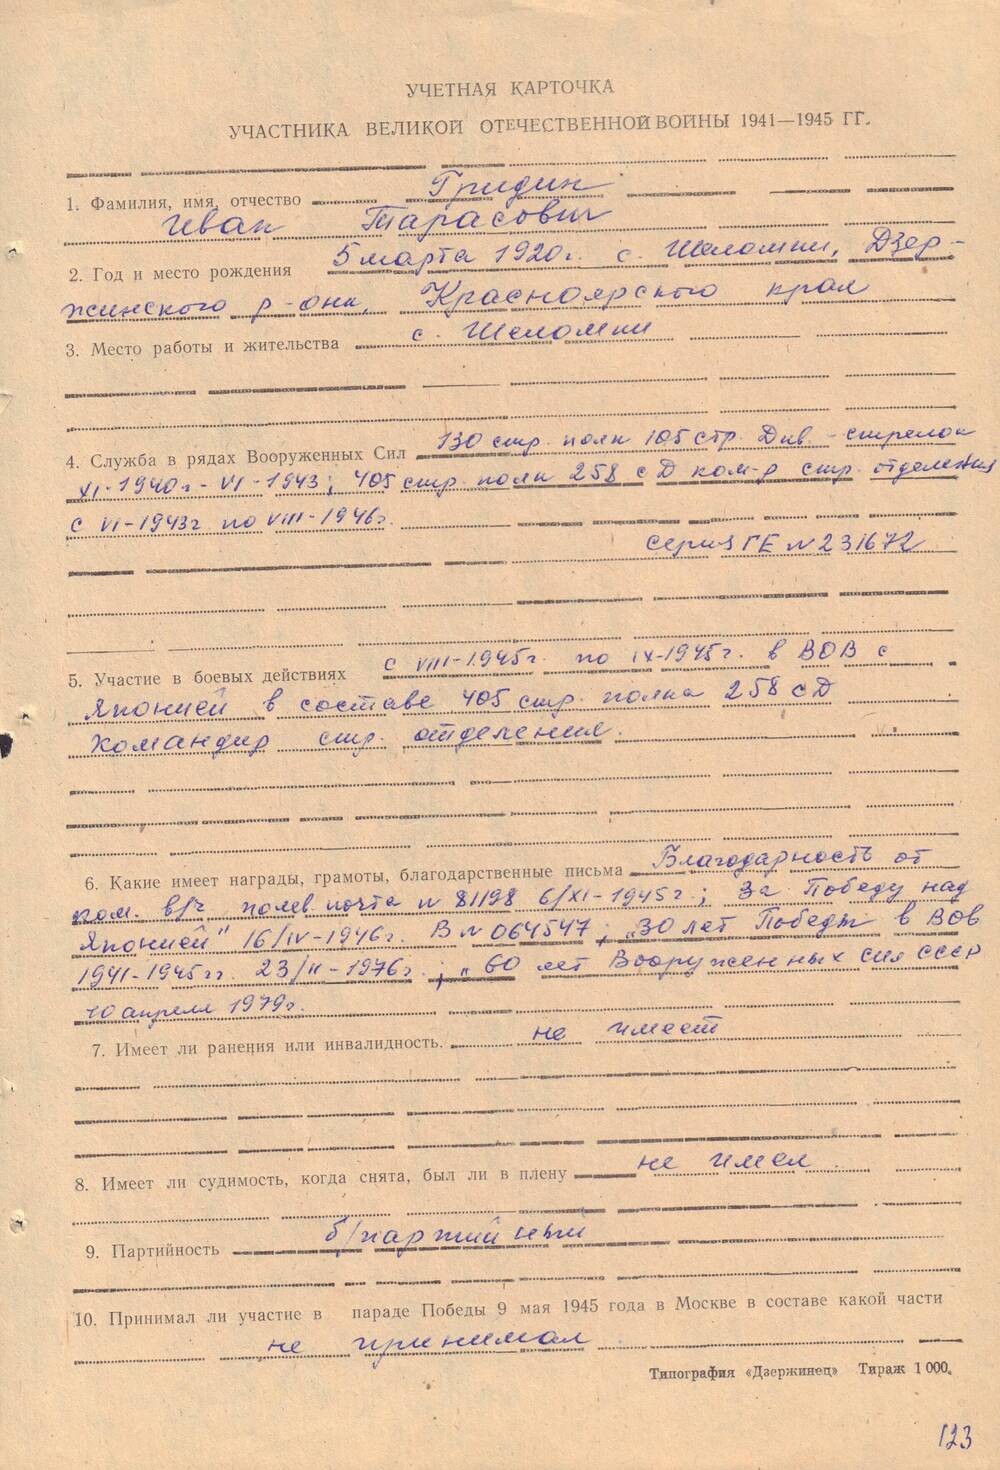 УЧЕТНАЯ КАРТОЧКА
УЧАСТНИКА ВЕЛИКОЙ ОТЕЧЕСТВЕННОЙ ВОЙНЫ 1941—1945 ГГ.
1. Фамилия, имя, отчество Гридин
Иван Тарасович
2. Год и место рождения 5 марта 1920г. с. Шеломки, Дзер-
жинского р-она, Красноярского края
3. Место работы и жительства с. Шеломки
4. Служба в рядах Вооруженных Сил 130 стр. полк 105 стр. Див. - стрелок
XI-1940г - VI-1943; 405 стр. полк 258 сД ком-р стр. отделения
с VI-1943г по VIII-1946г.
серия ГЕ N 231672
5. Участие в боевых действиях с VIII-1945г. по IX-1945г. в ВОВ с
Японией в составе 405 стр. полка 258 сД
командир стр. отделения.
6. Какие имеет награды, грамоты, благодарственные письма Благодарность от
ком. в/ч полев. почта N 81198 6/XI-1945г; За Победу над
Японией" 16/IV-1946г. В N 064547; „30 лет Победы в ВОВ
1941-1945гг. 23/II-1976г.; „60 лет Вооруженных сил СССР
10 апреля 1979г.
7. Имеет ли ранения или инвалидность. не имеет
8. Имеет ли судимость, когда снята, был ли в плену не имел.
9. Партийность б/партийный
10. Принимал ли участие в параде Победы 9 мая 1945 года в Москве в составе какой части
не принимал
Типография «Дзержинец» Тираж 1 000.
123